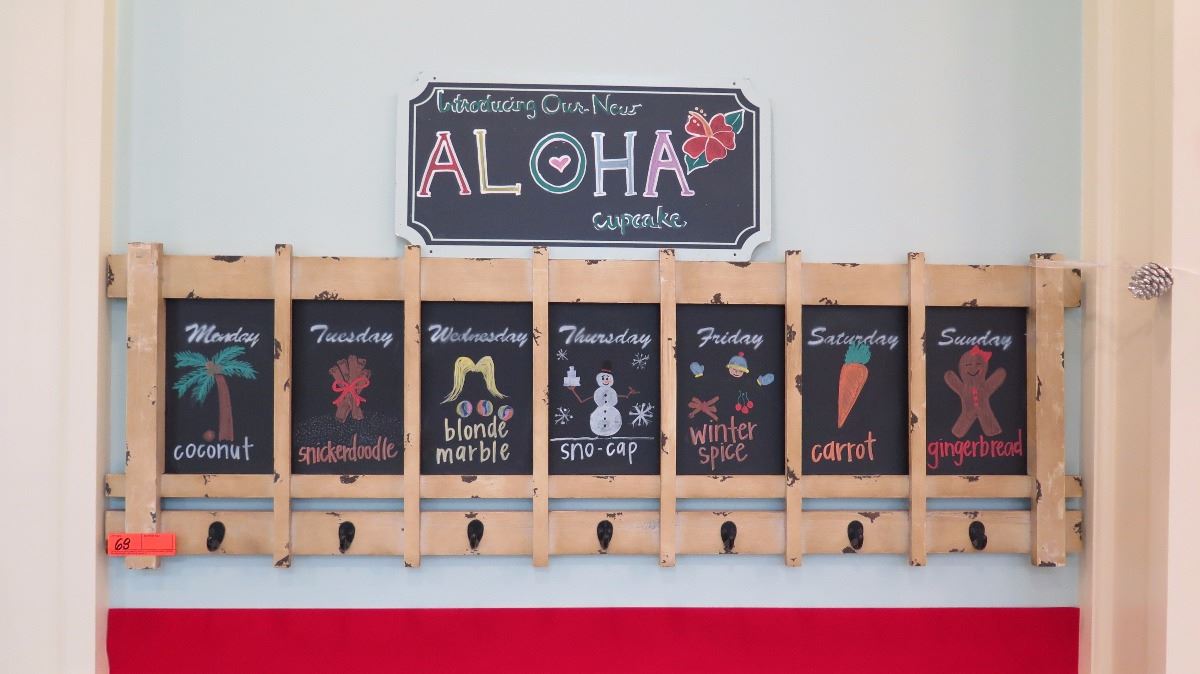 Introducing Our New
ALOHA
cupcake
Monday
coconut
Tuesday
snickerdoodle
Wednesday
blonde
marble
Thursday
sno-cap
Friday
winter
spice
Saturday
carrot
Sunday
gingerbread
68